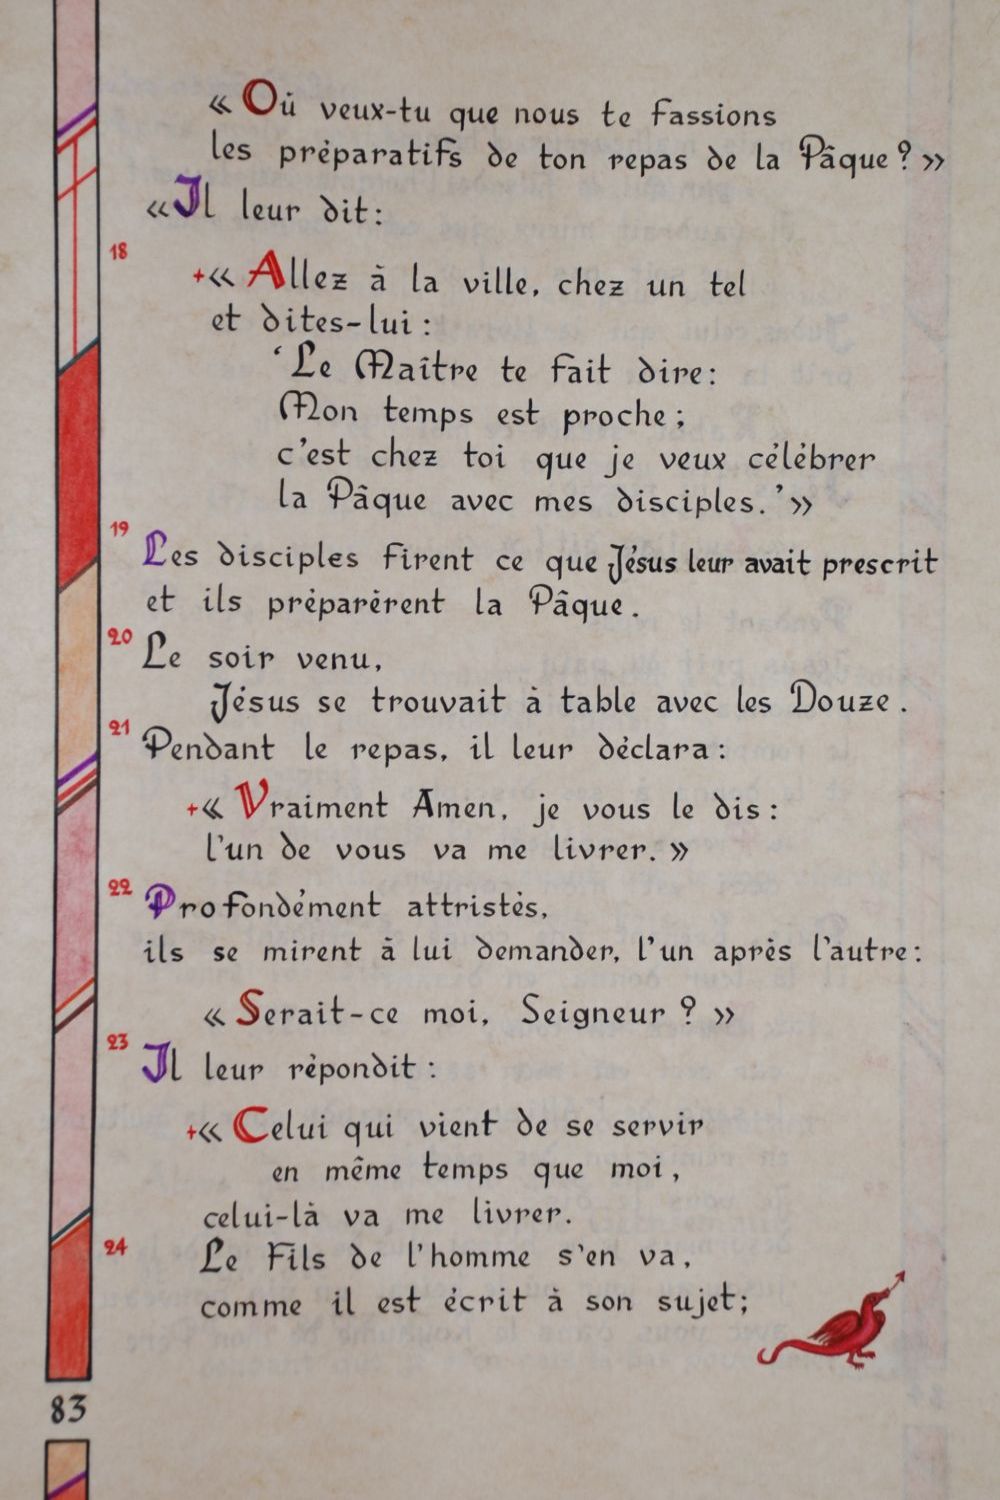 « Où veux-tu que nous te fassions
les préparatifs de ton repas de la Pâque ? »
«Il leur dit :
18
+« Allez à la ville, chez un tel
et dites-lui :
‘Le Maître te fait dire :
Mon temps est proche ;
c'est chez toi que je veux célébrer
la Pâque avec mes disciples.’»
19 Les disciples firent ce que Jésus leur avait prescrit
et ils préparèrent la Pâque.
20 Le soir venu,
Jésus se trouvait à table avec les Douze.
21 Pendant le repas, il leur déclara :
+« Vraiment Amen, je vous le dis :
l'un de vous va me livrer. »
22 Profondément attristés,
ils se mirent à lui demander, l'un après l'autre :
« Serait-ce moi, Seigneur ? »
23 Il leur répondit :
+« Celui qui vient de se servir
en même temps que moi,
celui-là va me livrer.
24 Le Fils de l'homme s'en va,
comme il est écrit à son sujet;
83